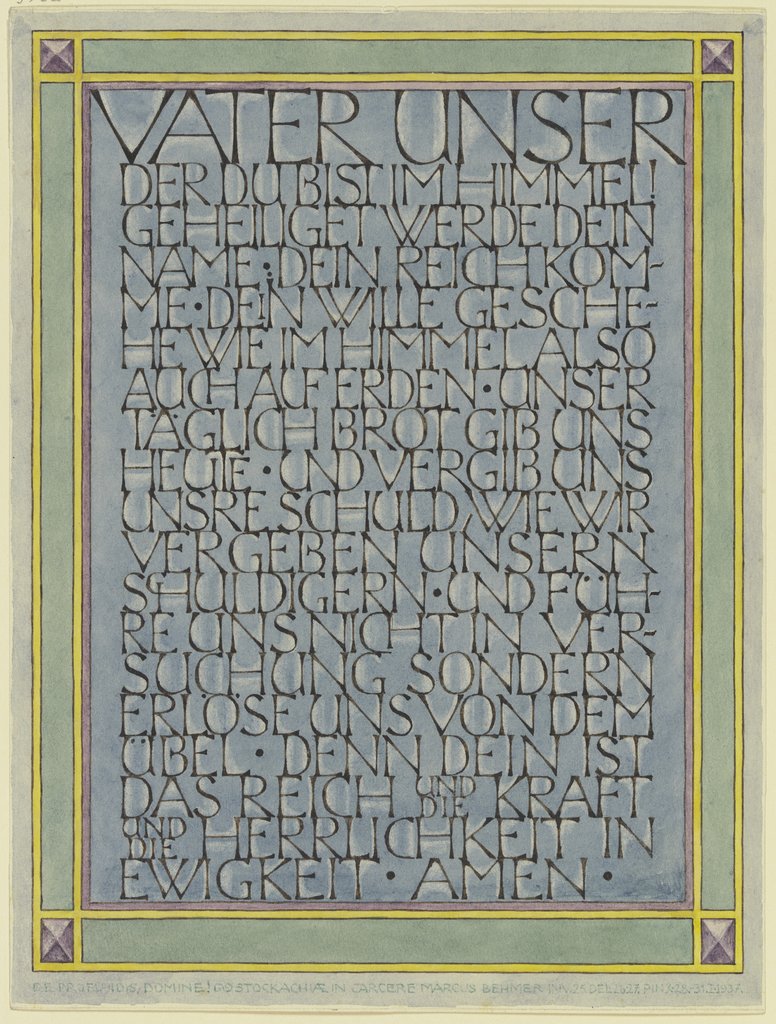 VATER UNSER
DER DU BIST IM HIMMEL!
GEHEILIGET WERDE DEIN
NAME · DEIN REICH KOM-
ME · DEIN WILLE GESCHE-
HE WIE IM HIMMEL ALSO
AUCH AUF ERDEN · UNSER
TÄGLICH BROT GIB UNS
HEUTE · UND VERGIB UNS
UNSRE SCHULD, WIE WIR
VERGEBEN UNSERN
SCHULDIGERN · UND FÜH-
RE UNS NICHT IN VER-
SUCHUNG SONDERN
ERLÖSE UNS VON DEM
ÜBEL · DENN DEIN IST
DAS REICH UND DIE KRAFT
UND DIE HERRLICHKEIT IN
EWIGKEIT · AMEN ·
DE PROFUNDIS, DOMINE! STOCKACHIÆ IN CARCERE MARCUS BEHMER INV. 25. DEL. 26.27. PINX. 28.-31.X.1937.